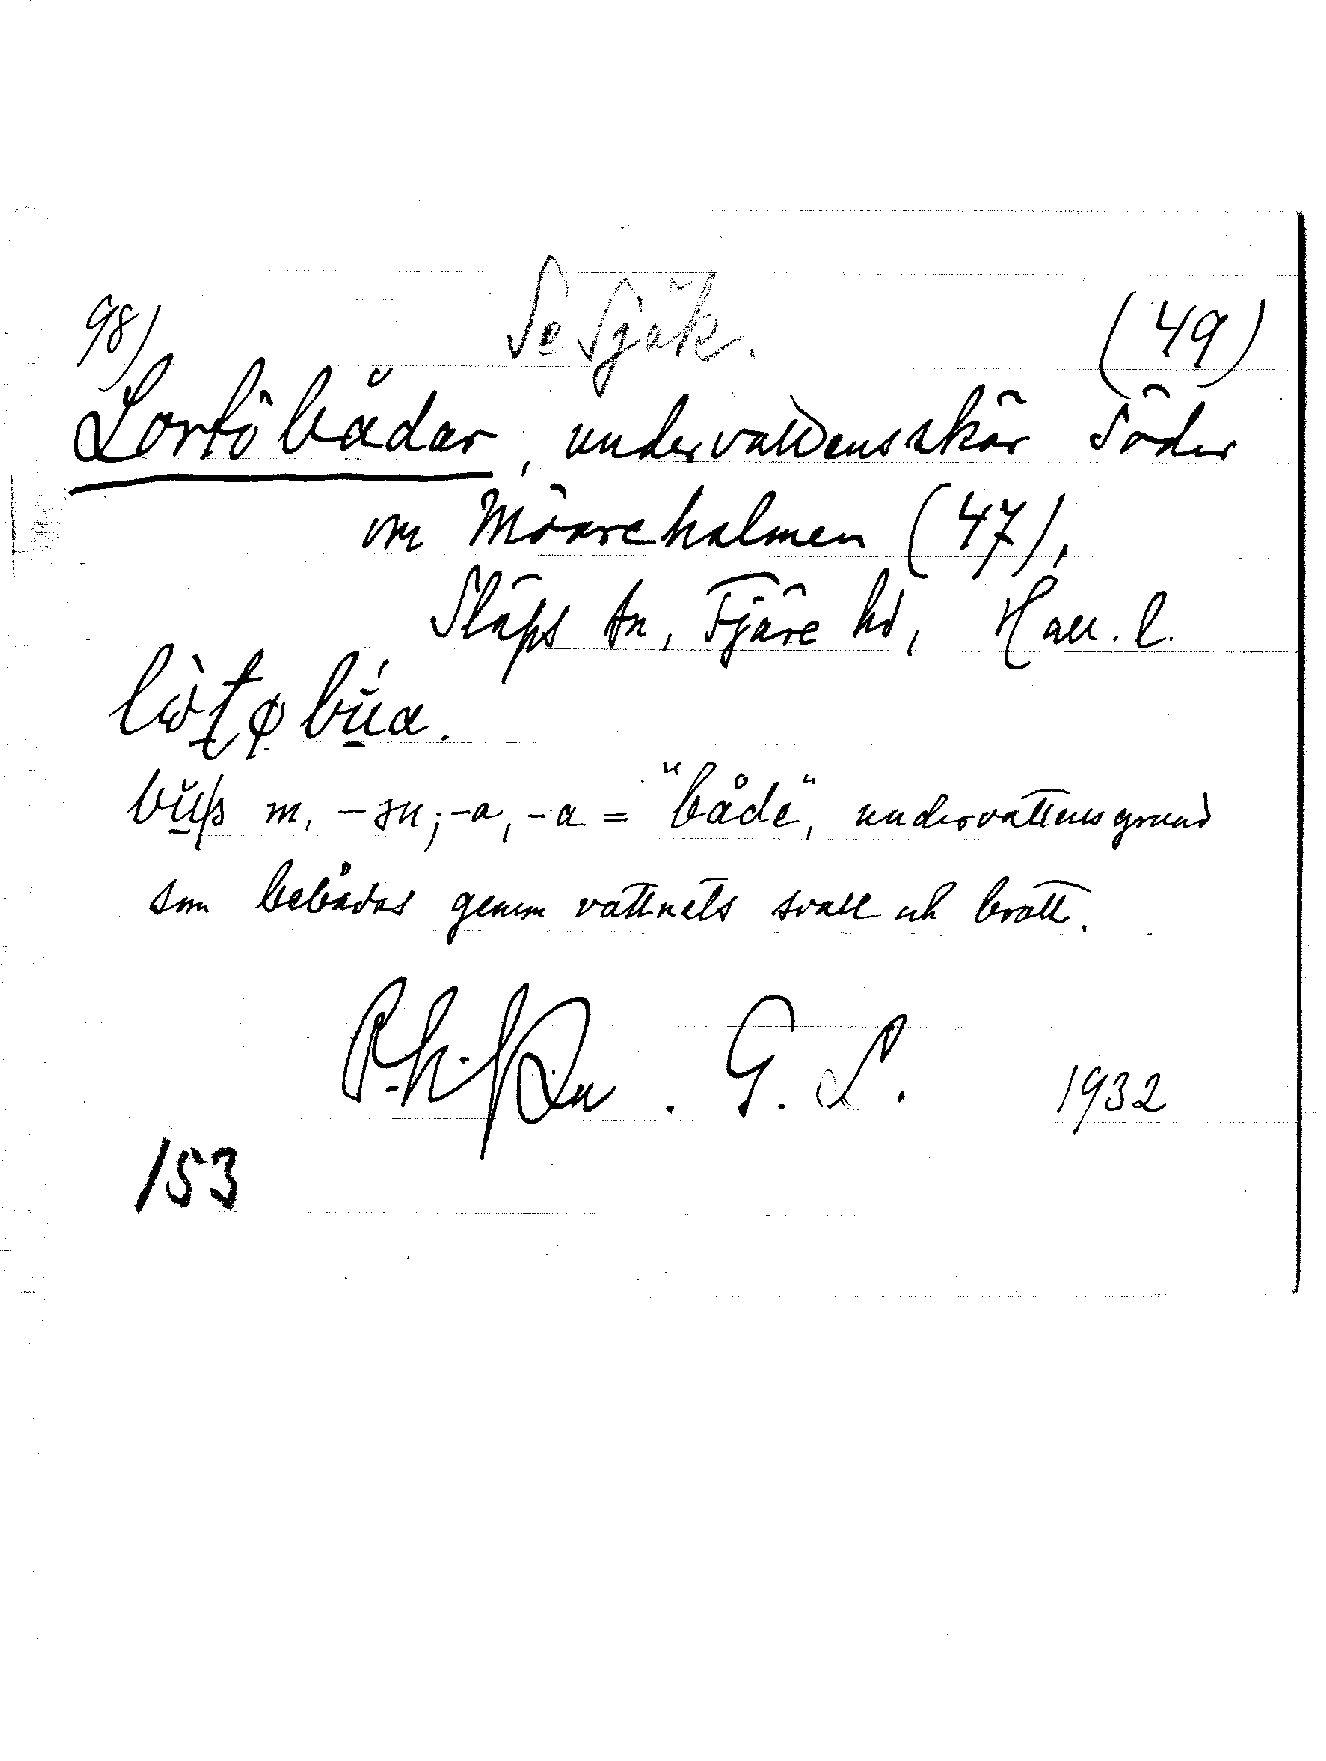 98) Se Sjök. (49)
Lortöbådar, undervattensskär söder
om Möareholmen (47),
Släps sn, Fjäre hd, Hall. l.
m, -ən; -a, -a = "både", undervattensgrund
som bebådas genom vattnets svall och brott.
G. L. 1932
153